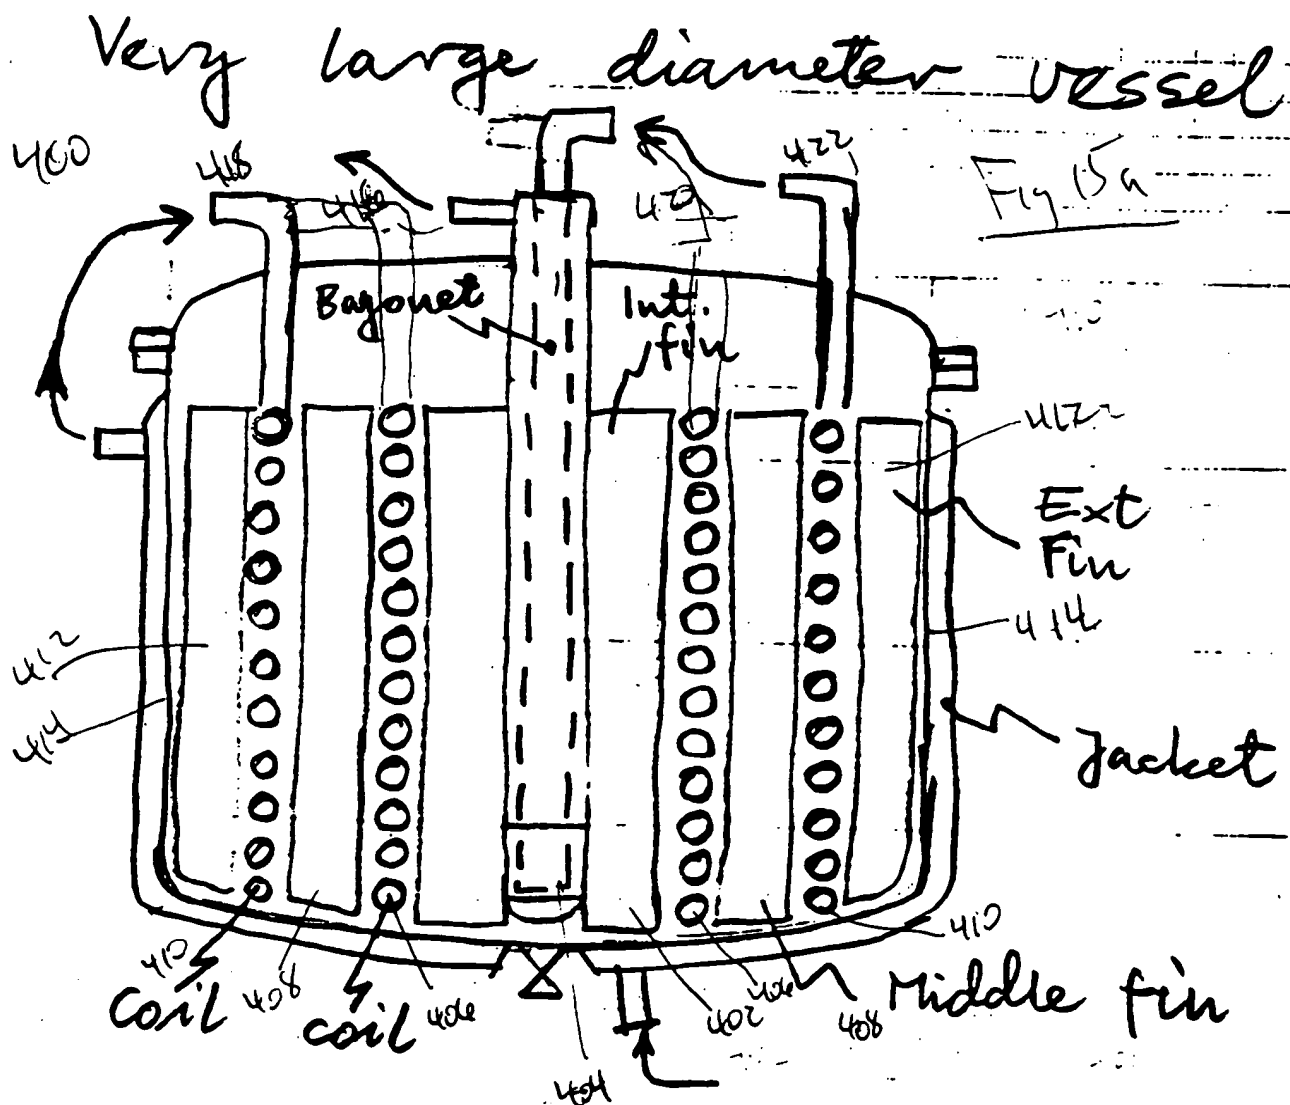 Very large diameter vessel
400
418
416
420
422
Fig 15a
Bayonet
Int.
fin
Ext
Fin
412
414
414
Jacket
410
408
406
coil
coil
404
402
406
408
410
Middle fin